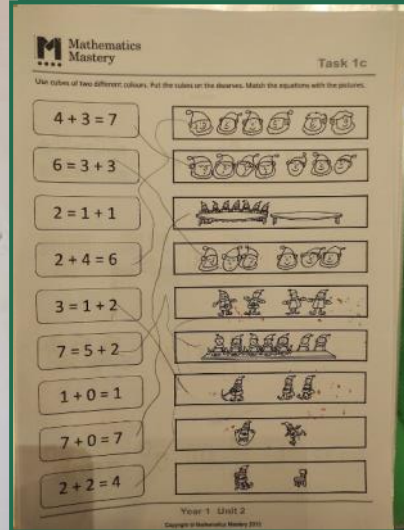 Mathematics
Mastery
Task 1c
Use cubes of two different colours. Put the cubes on the dwarves. Match the equations with the pictures.
4 + 3 = 7
6 = 3 + 3
2 = 1 + 1
2 + 4 = 6
3 = 1 + 2
7 = 5 + 2
1 + 0 = 1
7 + 0 = 7
2 + 2 = 4
Year 1 Unit 2
Copyright © Mathematics Mastery 2013